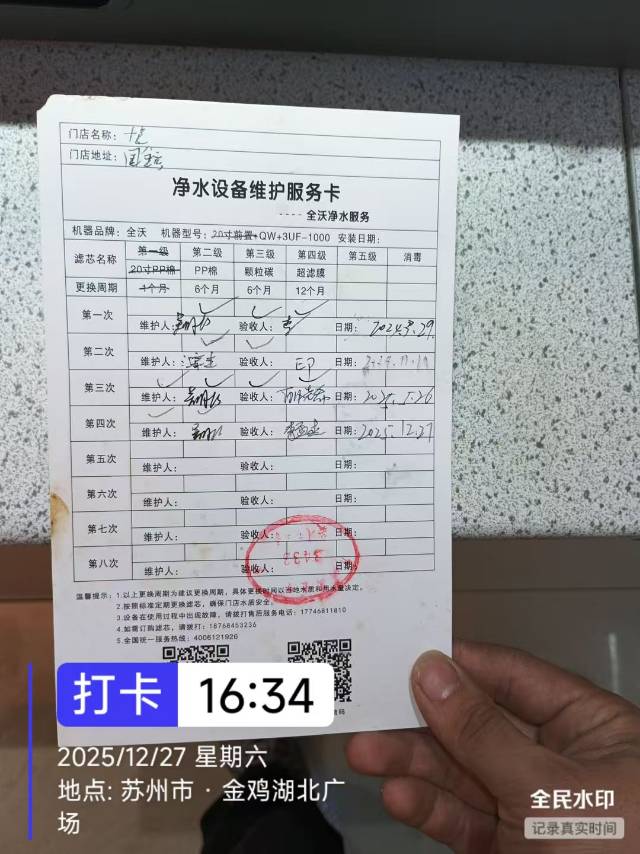 门店名称：
门店地址：
净水设备维护服务卡
---- 全沃净水服务
机器品牌：全沃 机器型号：20寸前置+QW+3UF-1000 安装日期：
滤芯名称 第一级 第二级 第三级 第四级 第五级 消毒
20寸PP棉 PP棉 颗粒碳 超滤膜
更换周期 1个月 6个月 6个月 12个月
第一次
维护人： 验收人： 日期：
第二次
维护人： 验收人： 日期：
第三次
维护人： 验收人： 日期：2025.5.26
第四次
维护人： 验收人： 日期：2025.12.27
第五次
维护人： 验收人： 日期：
第六次
维护人： 验收人： 日期：
第七次
维护人： 验收人： 日期：
第八次
维护人： 验收人： 日期：
温馨提示：1.以上更换周期为建议更换周期，具体更换时间以当地水质和用水量决定。
2.按照标准定期更换滤芯，确保门店水质安全。
3.设备在使用过程中出现故障，请拨打售后服务电话：17746811810
4.如需订购滤芯，请拨打：18768453236
5.全国统一服务热线：4006121926
打卡 16:34
2025/12/27 星期六
地点: 苏州市 · 金鸡湖北广
场
全民水印
记录真实时间